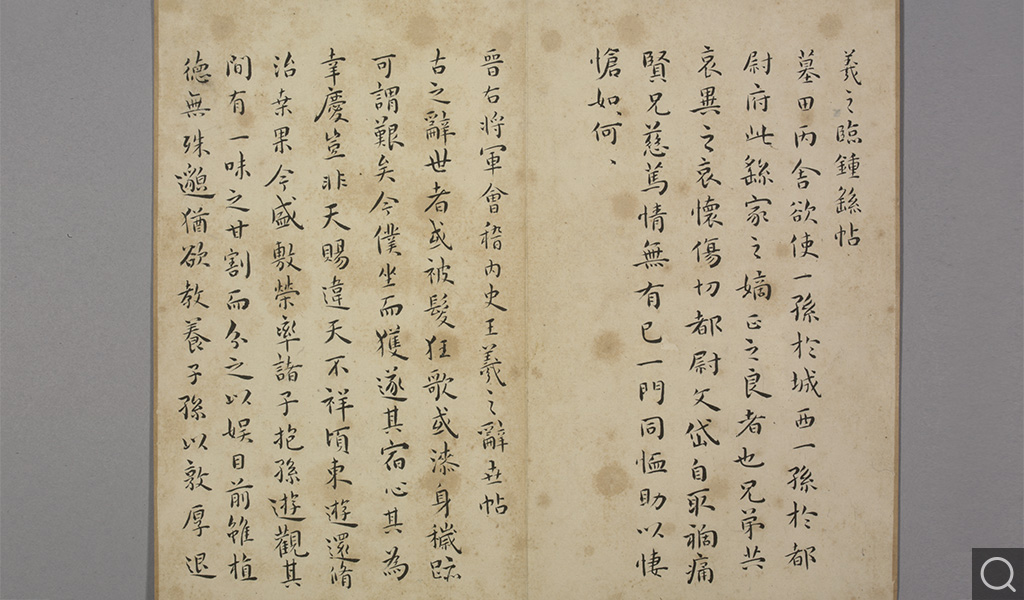 羲之臨鍾繇帖
墓田丙舍欲使一孫於城西一孫於都
尉府此繇家之嫡正之良者也兄弟共
哀異之哀懷傷切都尉文岱自取禍痛
賢兄慈篤情無有已一門同恤助以悽
愴如何、
晉右將軍會稽內史王羲之辭世帖
古之辭世者或被髮狂歌或漆身穢跡
可謂艱矣今僕坐而獲遂其宿心其為
幸慶豈非天賜違天不祥頃東遊還脩
治桒果今盛敷榮率諸子抱孫遊觀其
間有一味之甘割而分之以娛目前雖植
德無殊邈猶欲教養子孫以敦厚退